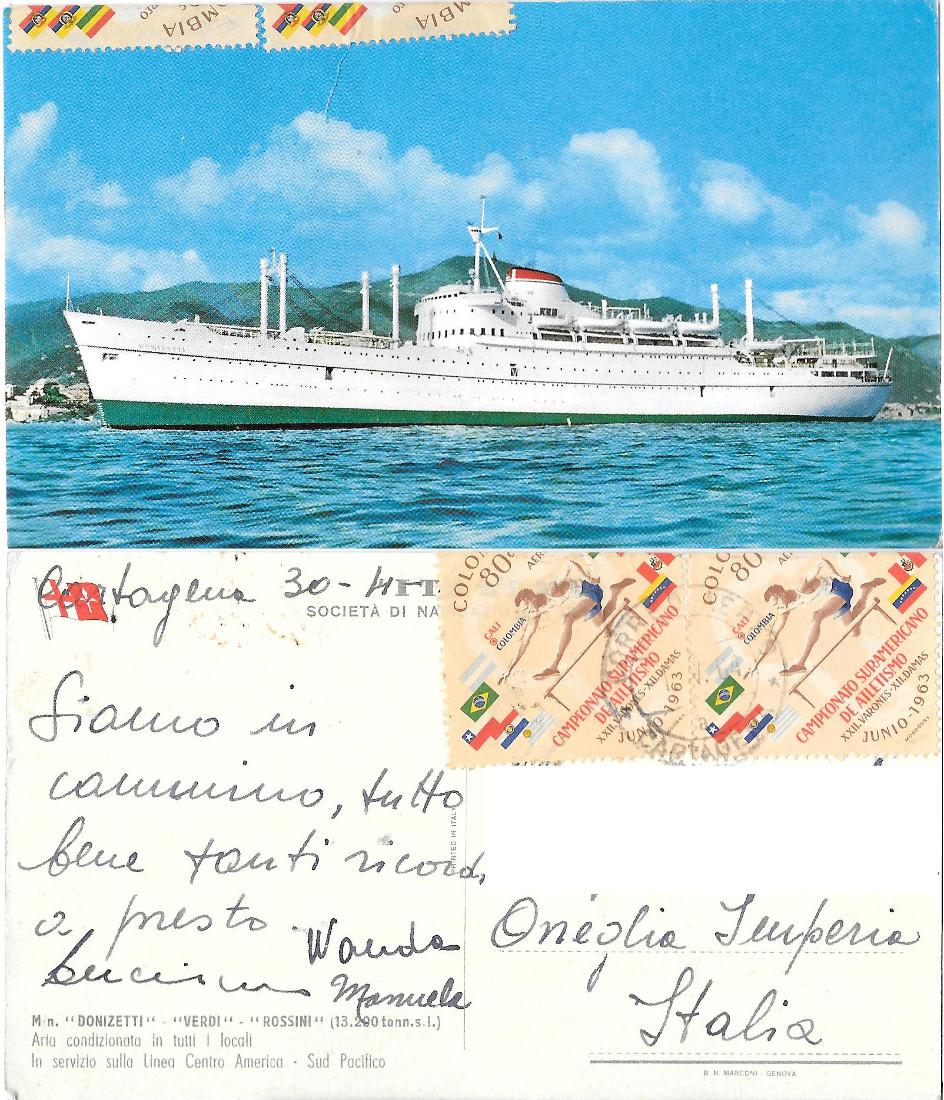 OMBIA
OMBIA
Cartagena 30-4-
ITA
SOCIETÀ DI NA
COLO
80
AER
CALI
COLOMBIA
CAMPEONATO SURAMERICANO
DE ATLETISMO
XXII. VARONES - XII. DAMAS
JUNIO - 1963
COLO
80
AE
CALI
COLOMBIA
CAMPEONATO SURAMERICANO
DE ATLETISMO
XXII. VARONES - XII. DAMAS
JUNIO - 1963
Siamo in
cammino, tutto
bene tanti ricordi
a presto
Wanda
Manuela
PRINTED IN ITALY
Oneglia Imperia
Italia
M/n. "DONIZETTI" - "VERDI" - "ROSSINI" (13.200 tonn. s.l.)
Aria condizionata in tutti i locali
In servizio sulla Linea Centro America - Sud Pacifico
B. N. MARCONI - GENOVA